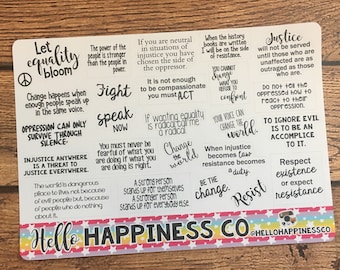 Let
equality
bloom
The power of the
people is stronger
than the people in
power.
If you are neutral
in situations of
injustice you have
chosen the side of
the oppressor.
When the history
books are written
I will be on the side
of resistance.
Justice
will not be served
until those who are
unaffected are as
outraged as those
who are.
Change happens when
enough people speak up
in the same voice.
Fight
It is not enough
to be compassionate
you must ACT
YOU CANNOT
change
what you
refuse to
confront
Do not tell the
oppressed how to
react to their
oppression.
OPPRESSION CAN ONLY
SURVIVE THROUGH
SILENCE.
speak
NOW
If wanting equality
is radical call me
a radical
YOUR VOICE CAN
CHANGE the
world.
TO IGNORE EVIL
IS TO BE AN
ACCOMPLICE
TO IT.
INJUSTICE ANYWHERE
IS A THREAT TO
JUSTICE EVERYWHERE.
You must never be
fearful of what you
are doing if what you
are doing is right.
Change
the
world
When injustice
becomes law
resistance becomes
a duty.
Respect
existence
or expect
resistance
The world is dangerous
place to live; not because
of evil people but, because
of people who do nothing
about it.
A strong person
stands up for themselves
A stronger person
stands up for everybody else.
BE THE
CHANGE.
Resist
Hello HAPPINESS CO
@HELLOHAPPINESSCO